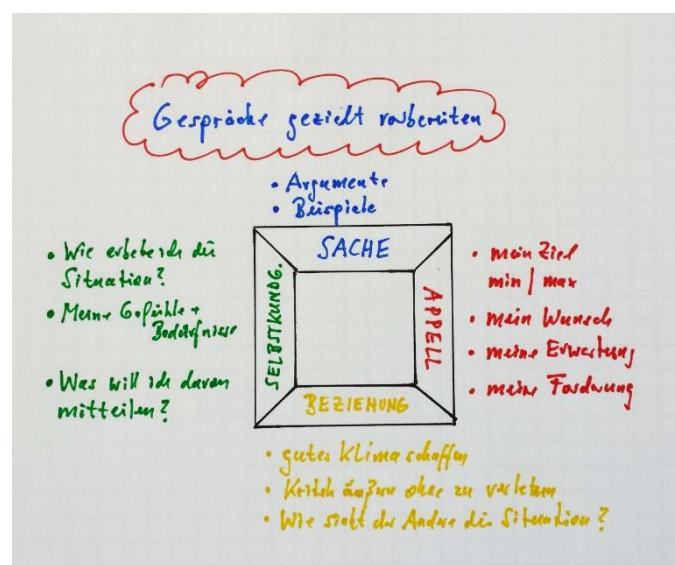 Gespräche gezielt vorbereiten
• Argumente
• Beispiele
SACHE
• Wie erlebe ich die
Situation?
• Meine Gefühle +
Bedürfnisse
• Was will ich davon
mitteilen?
SELBSTKUNDG.
APPELL
• mein Ziel
min / max
• mein Wunsch
• meine Erwartung
• meine Forderung
BEZIEHUNG
• gutes Klima schaffen
• Kritik äußern ohne zu verletzen
• Wie sieht der Andere die Situation?